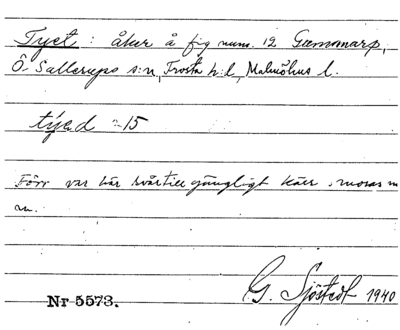 Tyet: åker å fig num. 12 Gummarp,
Ö. Sallerups s:n, Frosta h:d, Malmöhus l.
týed ~15
Förr var här svårtillgängligt kärr, moras m
m.
G. Sjöstedt 1940
Nr 5573.